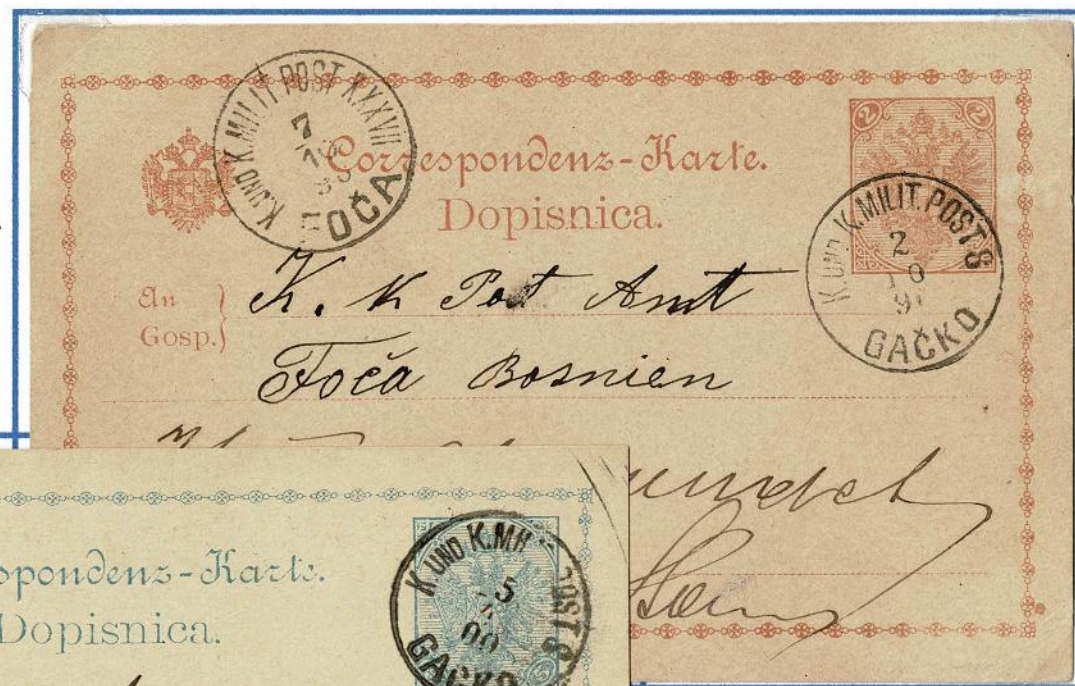 K. UND K. MILIT. POST XXXVII
7
10
FOČA
Correspondenz-Karte.
Dopisnica.
2 2
K. UND K. MILIT. POST 8
2
10
GAČKO
An
Gosp.
K. K Post Amt
Foča Bosnien
spondenz-Karte.
Dopisnica.
K. UND K. MI POST 8
5
00
GAČKO
5